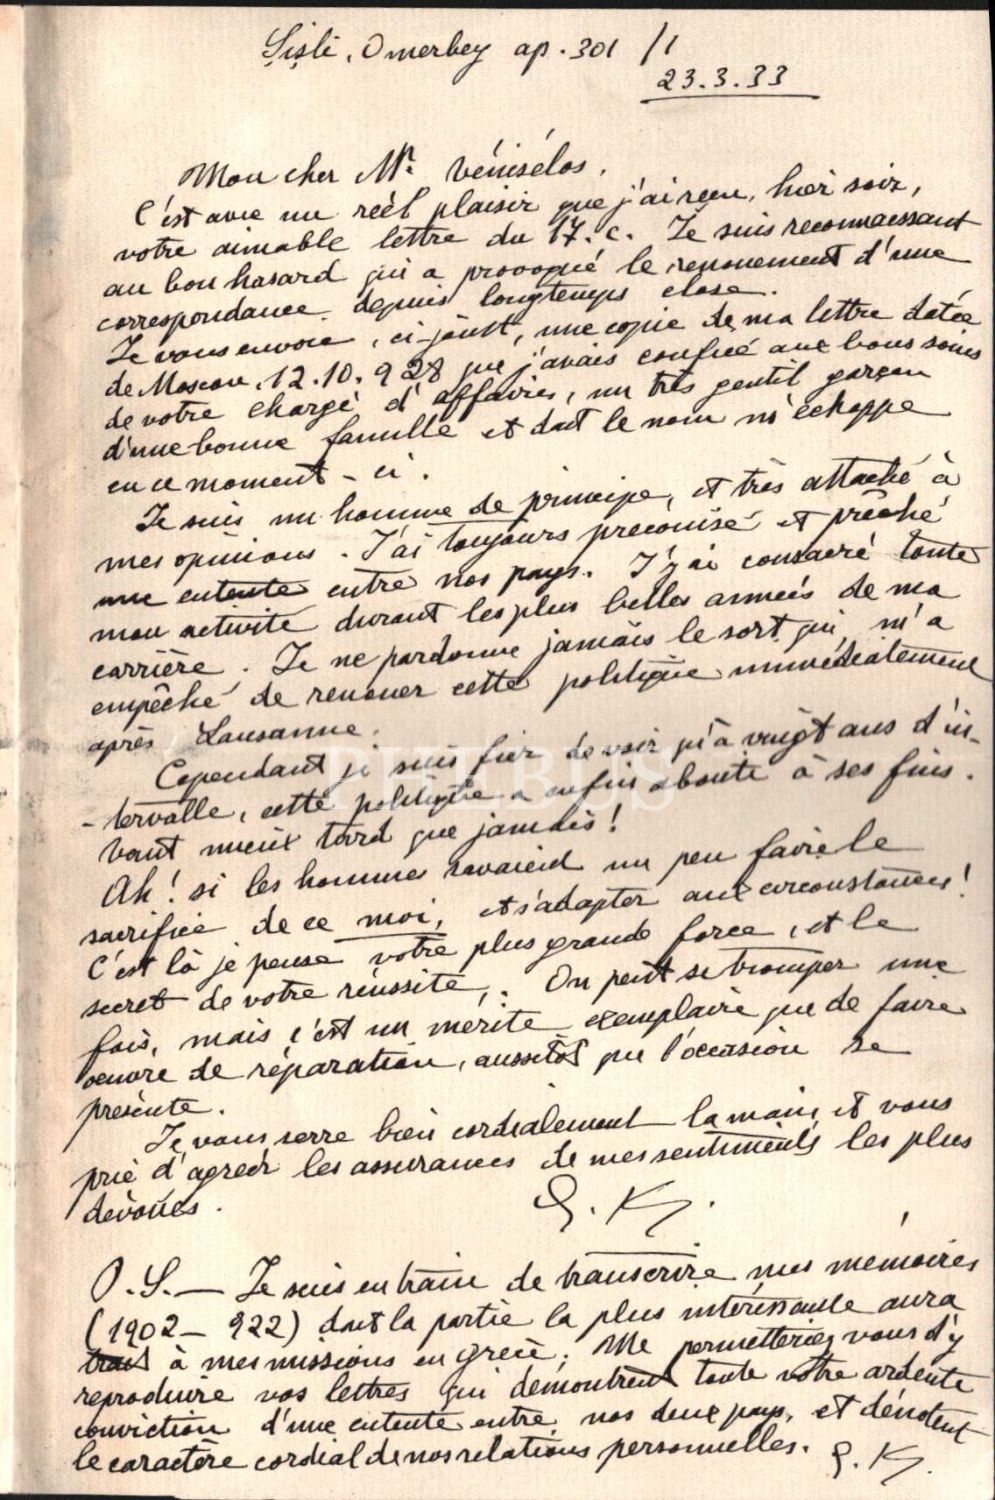 Şişli, Omerbey ap. 301/1
23.3.33
Mon cher Mr. Vénisélos,
C'est avec un réél plaisir que j'ai reçu, hier soir,
votre aimable lettre du 17. c. Je suis reconnaissant
au bon hasard qui a provoqué le renouement d'une
correspondance depuis longtemps close.
Je vous envoie, ci-joint, une copie de ma lettre datée
de Moscou. 12.10.928 que j'avais confiée aux bons soins
de votre chargé d'affaires, un très gentil garçon
d'une bonne famille et dont le nom m'echappe
en ce moment-ci.
Je suis un homme de principe, et très attaché à
mes opinions. J'ai toujours preconisé et prêché
une entente entre nos pays. J'y ai consacré toute
mon activité durant les plus belles années de ma
carrière. Je ne pardonne jamais le sort qui m'a
empêché de renouer cette politique immédiatement
après Lausanne.
Cependant je suis fier de voir qu'à vingt ans d'in-
-tervalle, cette politique a enfin aboutie à ses fins.
Vaut mieux tard que jamais!
PHEBUS
Ah! si les hommes savaient un peu faire le
sacrifice de ce moi, et s'adapter aux circonstances!
C'est là je pense votre plus grande force, et le
secret de votre réussite. On peut se tromper une
fois, mais c'est un mérite exemplaire que de faire
oeuvre de réparation, aussitôt que l'occasion se
présente.
Je vous serre bien cordialement la main et vous
prie d'agréer les assurances de mes sentiments les plus
dévoués.
G. K.
P.S. — Je suis en train de transcrire mes mémoires
(1902-922) dont la partie la plus intéressante aura
trait à mes missions en grèce. Me permetteriez vous d'y
reproduire vos lettres qui démontrent toute votre ardente
conviction d'une entente entre nos deux pays, et dénotent
le caractère cordial de nos relations personnelles.
G. K.